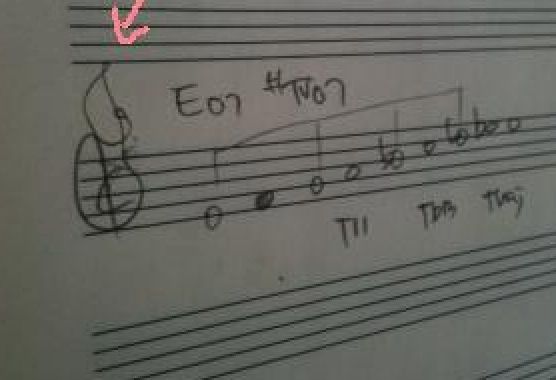 Eo7 #IVo7
T11 Tb13 Tmaj